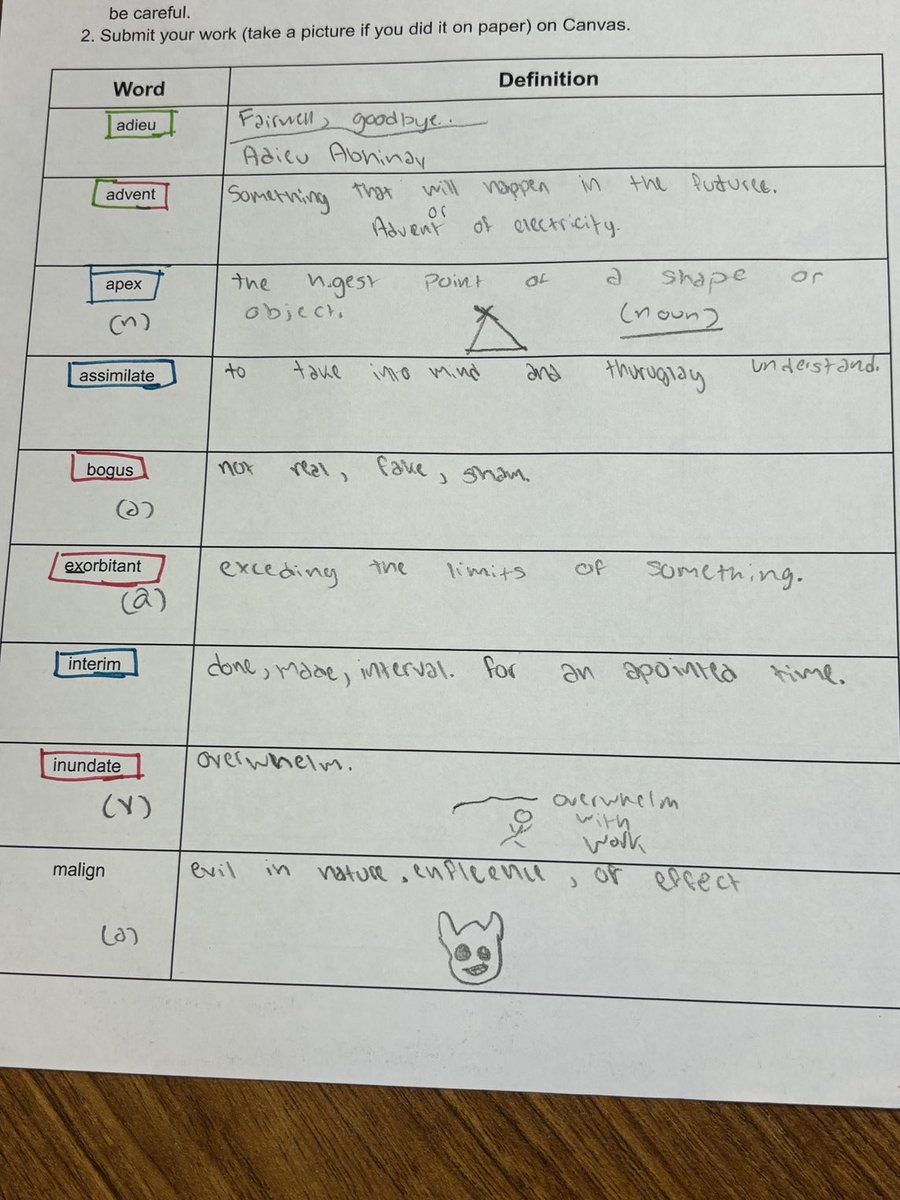 be careful.
2. Submit your work (take a picture if you did it on paper) on Canvas.
Word Definition
adieu Fairwell, goodbye.
Adieu Abhinay
advent Something that will happen in the futuree.
or
Advent of electricity.
apex the higest point of a shape or
(n) object. (noun)
assimilate to take into mind and thuruglay understand.
bogus not real, fake, sham.
(a)
exorbitant exceding the limits of something.
(a)
interim done, made, interval. for an apointed time.
inundate overwhelm.
(v) overwhelm
with
work
malign evil in nature, enfleence, or effect
(a)